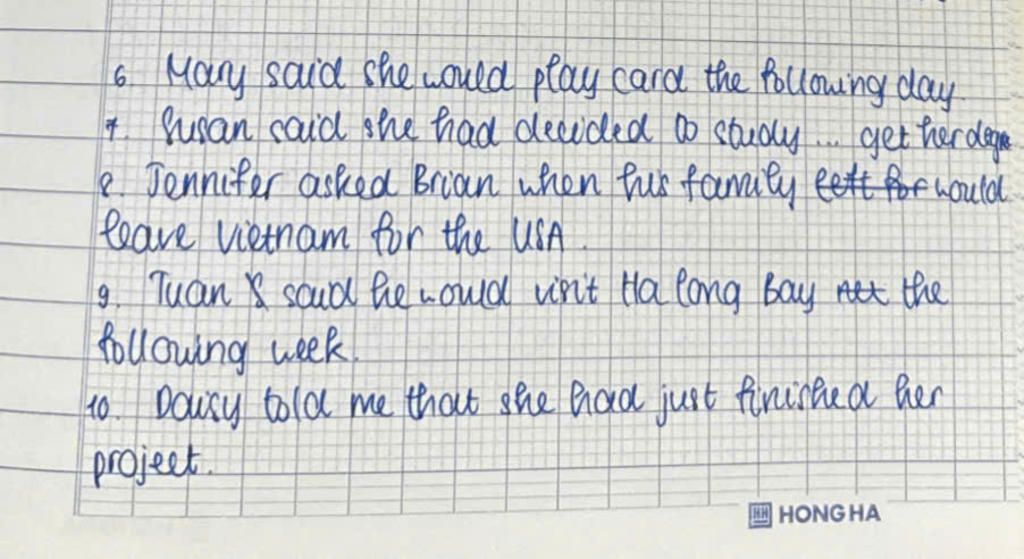 6. Mary said she would play card the following day.
7. Susan said she had decided to study ... get her degre
8. Jennifer asked Brian when his family left for would
leave Vietnam for the USA.
9. Tuan said he would visit Ha long Bay nex the
following week.
10. Daisy told me that she had just finished her
project.
HH HONG HA